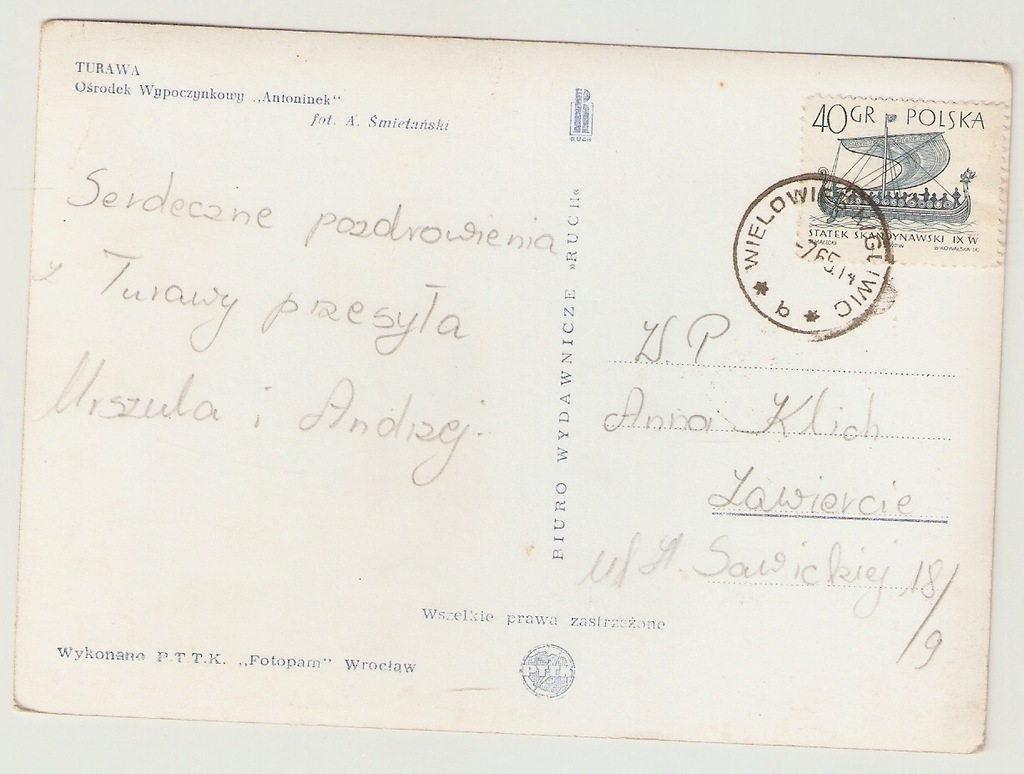 TURAWA
Ośrodek Wypoczynkowy „Antoninek"
fot. A. Śmietański
Serdeczne pozdrowienia
z Turawy przesyła
Urszula i Andrzej.
RUCH
BIURO WYDAWNICZE »RUCH«
40 GR POLSKA
STATEK SKANDYNAWSKI IX W
WIELOWIEŚ K. GLIWIC
W.P
Anna Klich
Zawiercie
ul H. Sawickiej 18/
/9
Wszelkie prawa zastrzeżone
Wykonano P.T.T.K. „Fotopam" Wrocław
PTTK